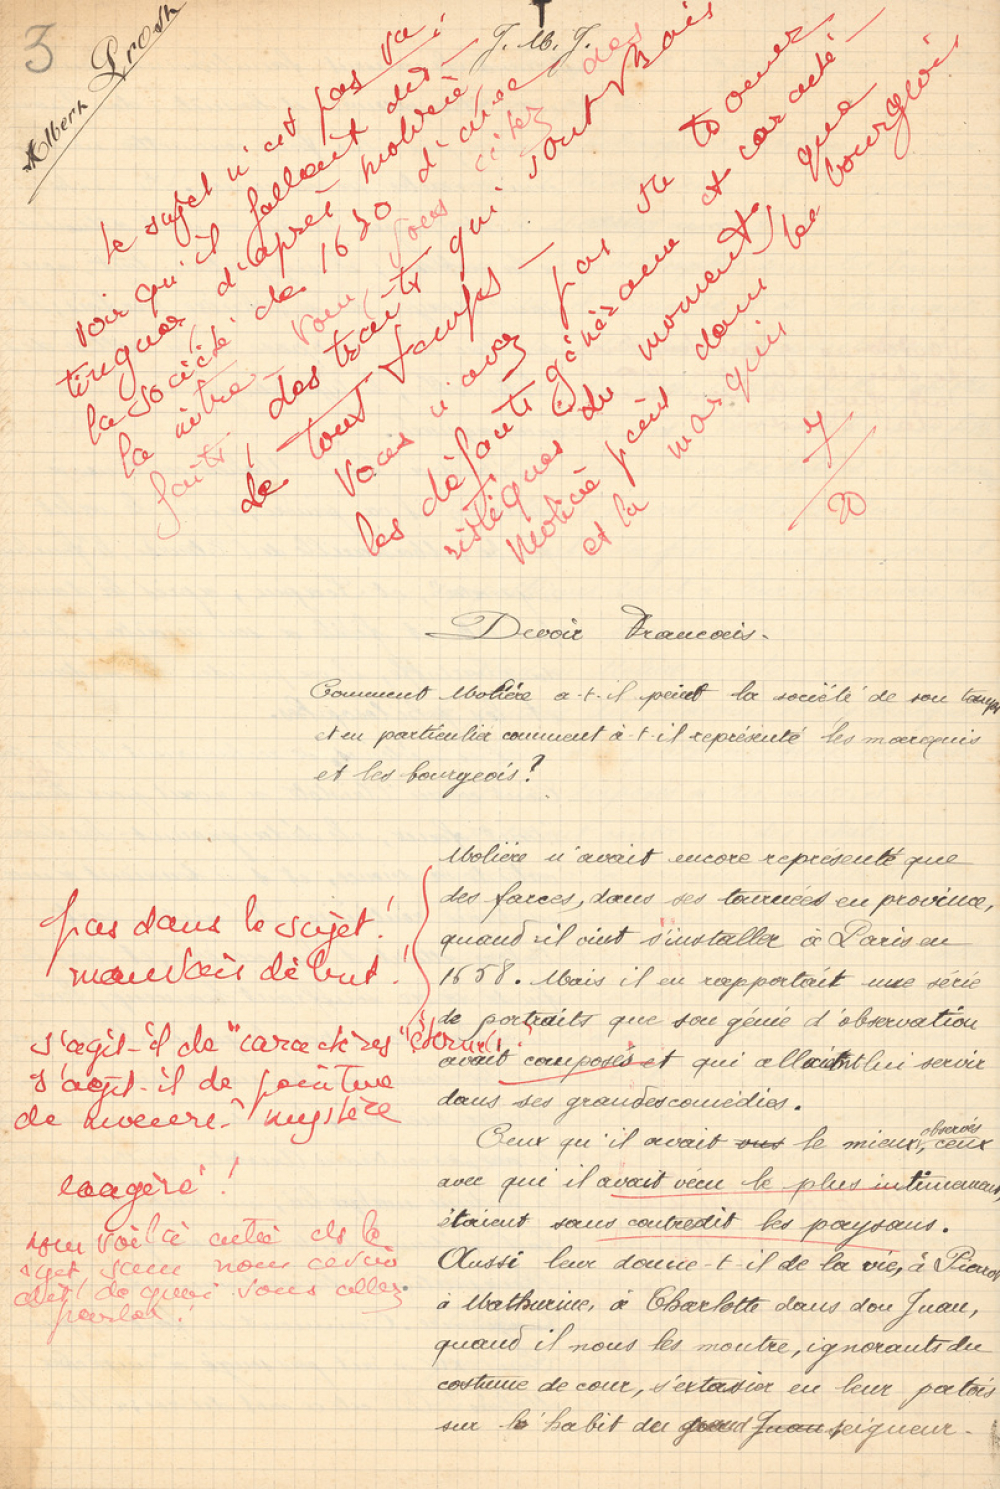 3
Albert Prost
J. M. J.
Le sujet n'est pas vu ;
voir qu'il fallait dis-
tinguer, d'après Molière
la société de 1660 d'avec
la nôtre. Vous, vous citez des
faits, des traits qui sont vrais
de tout temps -
Vous n'avez pas su trouver
les défauts généraux et caracté-
ristiques du moment que
Molière peint dans les bourgeois
et la marquis
7/20
Devoir Francais.
Comment Molière a-t-il peint la société de son temps
et en particulier comment à-t-il représenté les marquis
et les bourgeois?
Molière n'avait encore représenté que
des farces, dans ses tournées en province,
quand il vint s'installer à Paris en
1658. Mais il en rapportait une série
de portraits que son génie d'observation
avait composés et qui allaient lui servir
dans ses grandes comédies.
pas dans le sujet !
mauvais début !
s'agit-il de "caractères" éternels ?
s'agit-il de peinture
de moeurs - mystère
Ceux qu'il avait vus le mieux observés, ceux
avec qui il avait vécu le plus intimement,
étaient sans contredit les paysans.
Aussi leur donne-t-il de la vie, à Pierrot
à Mathurine, à Charlotte dans don Juan,
quand il nous les montre, ignorants du
costume de cour, s'extasier en leur patois
sur l'habit du grand Juan seigneur.
exagéré !
vous voilà entré ds le
sujet sans nous avoir
dit de quoi vous allez
parler !